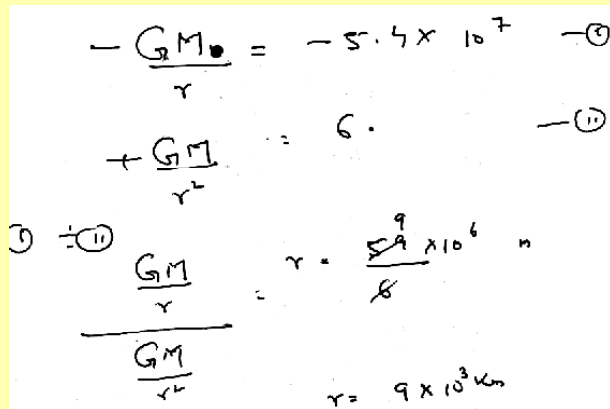 - GM/r = - 5.4 × 10^7 —(i)
+ GM/r^2 = 6. —(ii)
(i) ÷ (ii)
(GM/r)/(GM/r^2) = r = 54 9 × 10^6/6 m
r = 9 × 10^3 km